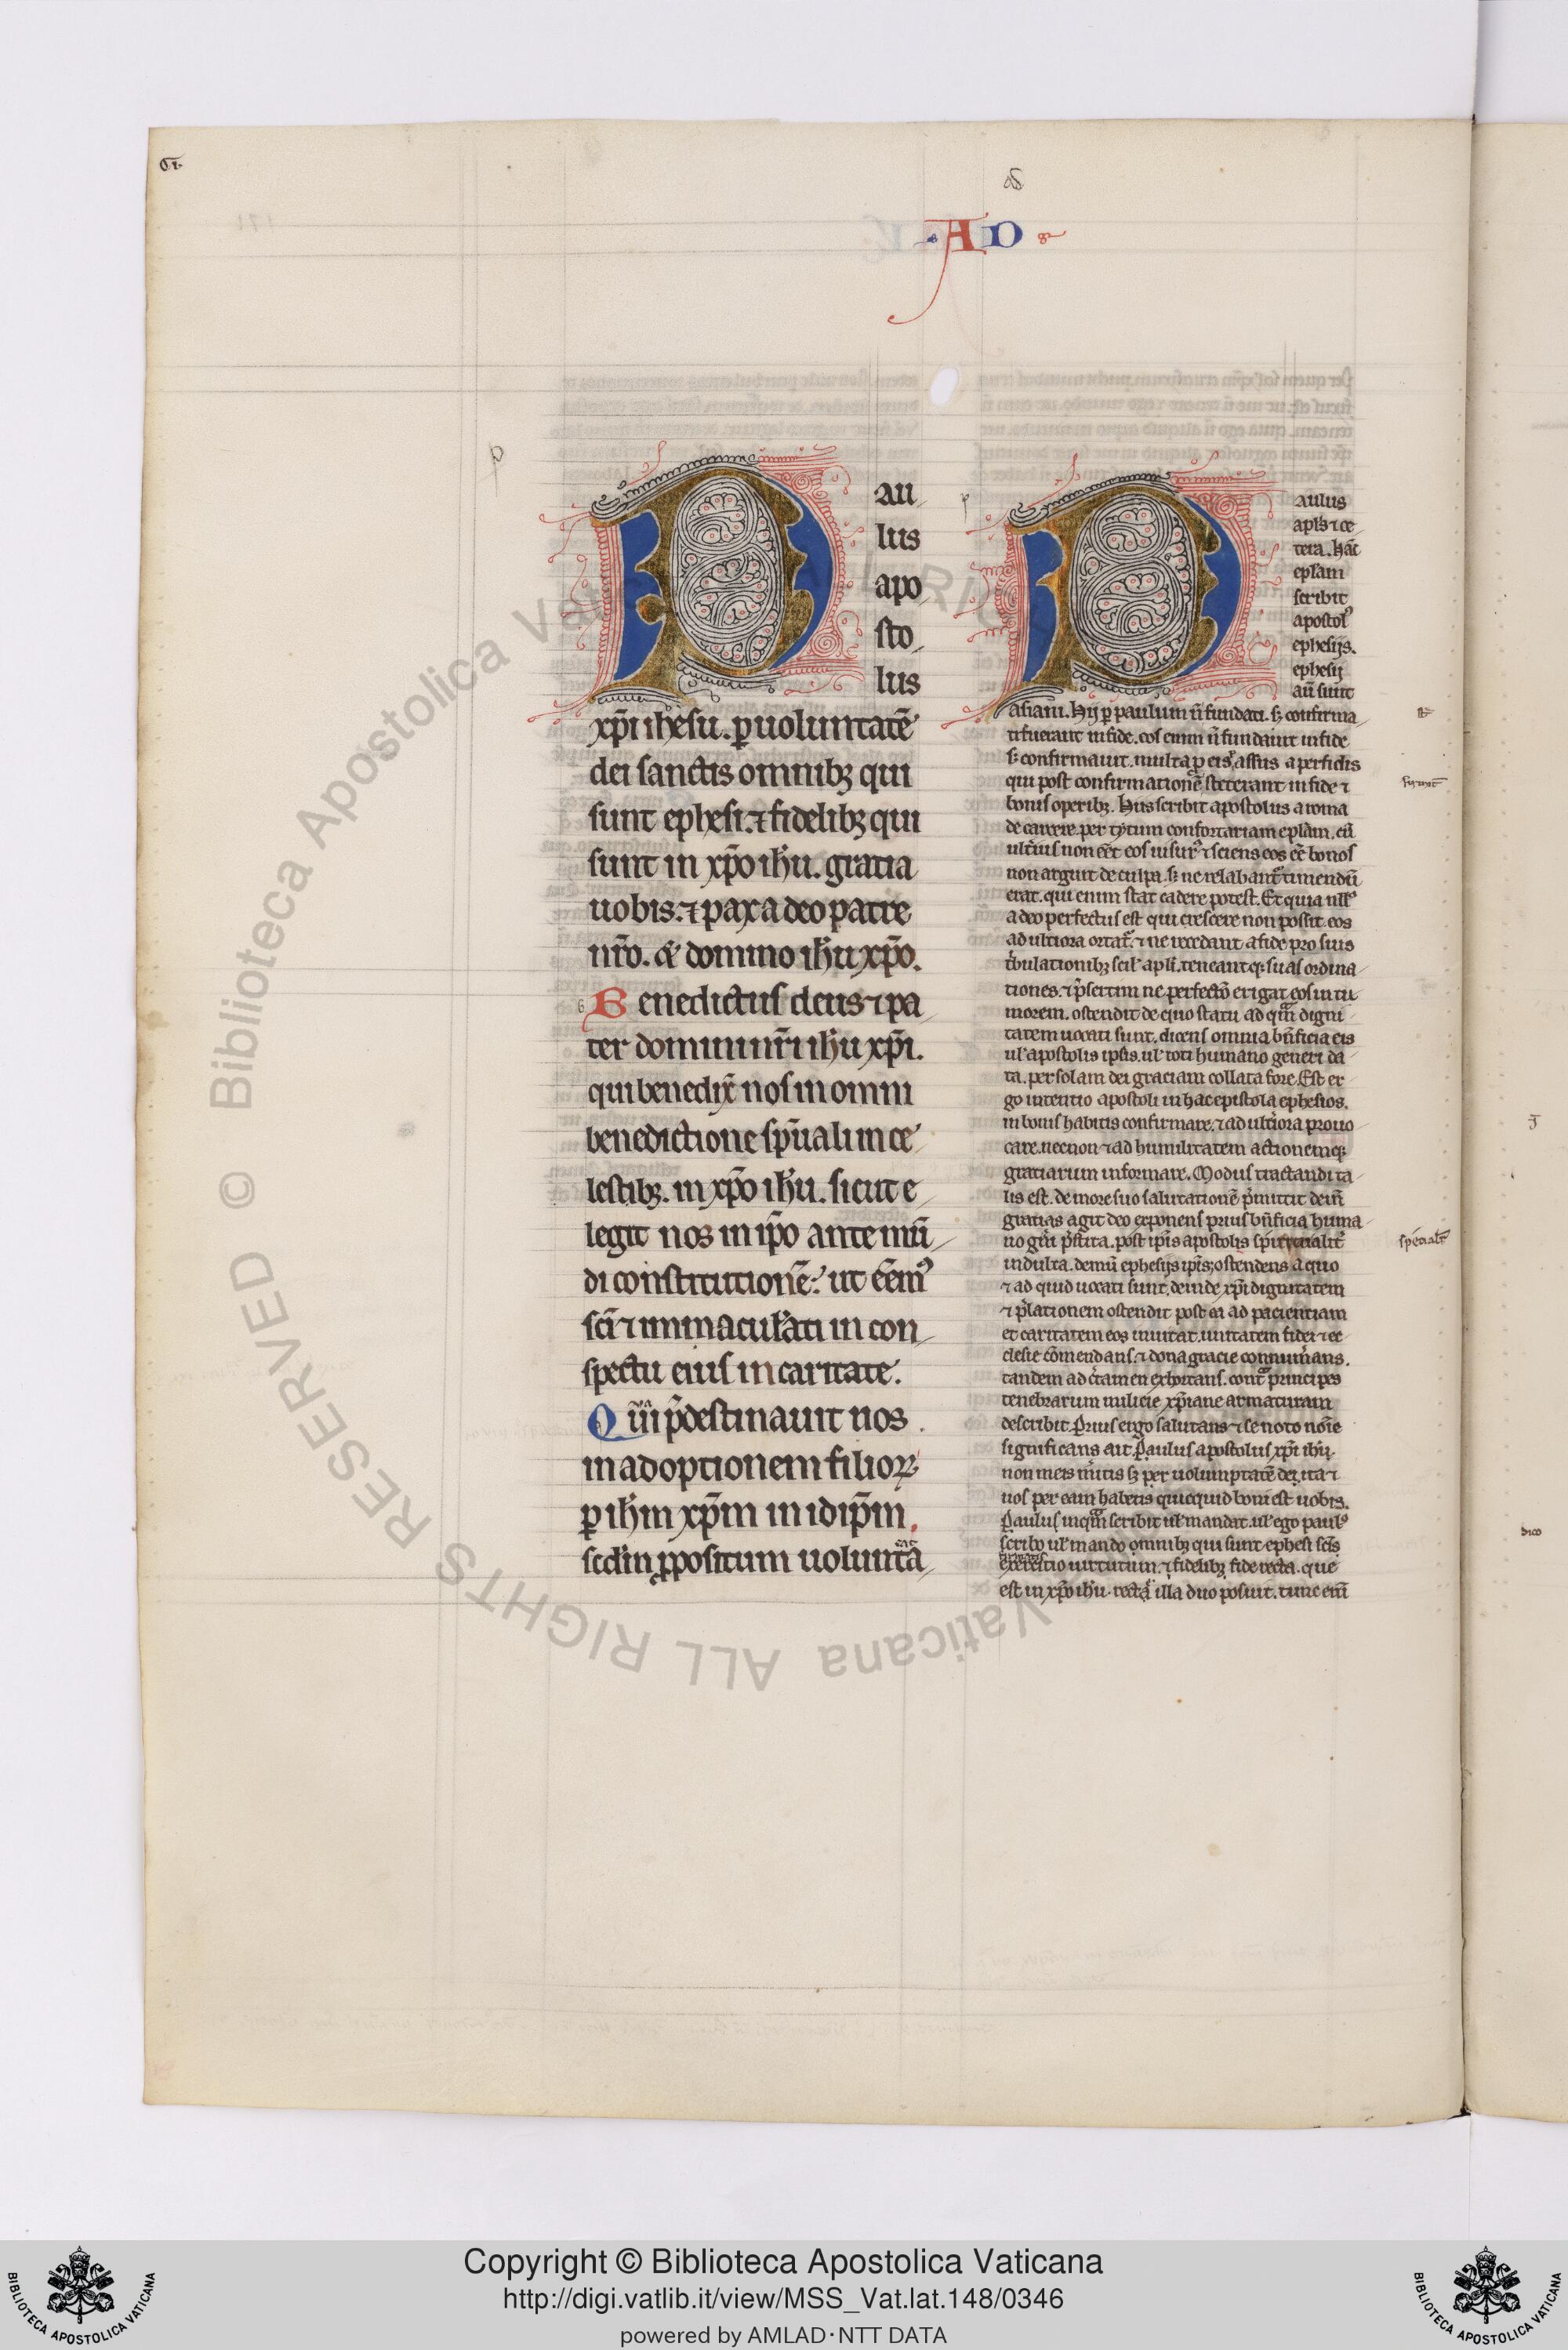 AD
Pau
lus
apo
sto
lus
xp̄i ihesu. ꝑ uoluntatē
dei sanctis omnibꝫ qui
sunt ephesi. ⁊ fidelibꝫ qui
sunt in xp̄o ih̄u. gratia
uobis. ⁊ pax a deo patre
nr̄o. & domino ih̄u xp̄o.
Benedictus deus ⁊ pa
ter domini nr̄i ih̄u xp̄i.
qui benedix̄ nos in omni
benedictione sp̄uali in ce
lestibꝫ. in xp̄o ih̄u. sicut e
legit nos in ip̄o ante mū
di constitutionē. ut eēmꝰ
sc̄i ⁊ immaculati in con
spectu eius in caritate.
Qui p̄destinauit nos
in adoptionem filioꝝ
ꝑ ih̄m xp̄m in id ip̄m.
scd̄m ꝓpositum uoluntā
Paulus
apl̄s ⁊ ce
tera. hāc
epl̄am
scribit
apostolꝰ
ephesijs.
ephesij
aū sunt
asiani. Hij ꝑ paulum n̄ fundati. sꝫ confirma
ti fuerant in fide. eos enim n̄ fundauit in fide
sꝫ confirmauit. multa ꝑ eis assus a perfidis
qui post confirmationē steterant in fide ⁊
bonis operibꝫ. Hus scribit apostolus a roma
de carcere. per tytum confortariam epl̄am. cū
ult̄ius non eēt eos uisurꝰ ⁊ sciens eos eē bonos
non arguit de culpa. sꝫ ne relabant̄ timendū
erat. qui enim stat cadere potest. Et quia nllꝰ
adeo perfectus est qui crescere non possit. eos
ad ulteriora ortat̄. ⁊ ne recedant a fide pro suis
t̄bulationibꝫ scil' apl̄i. teneantqꝫ suas ordina
tiones. ⁊ p̄sertim ne perfectō erigat eos in tu
morem. ostendit de cuius statu ad qm̄ digni
tatem uocati sunt. dicens omnia bn̄ficia eis
ul' apostolis ipsis. ul' toti humano generi da
ta. per solam dei graciam collata fore. Est er
go intentio apostoli in hac epistola ephesios.
in bonis habitis confirmare. ⁊ ad ult̄iora prouo
care. necnon ⁊ ad humilitatem actionemqꝫ
gratiarum informare. Modus tractandi ta
lis est. de more suo salutationē p̄mittit dein̄
gratias agit deo exponens prius bn̄ficia huma
no gn̄i p̄stita. post ip̄is apostolis spiritualit̄
indulta. demū ephesijs ip̄is; ostendens a quo
⁊ ad quid uocati sunt. deinde xp̄i dignitatem
⁊ p̄lationem ostendit post ea ad pacientiam
et caritatem eos inuitat. unitatem fidei ⁊ ec
clesie cōmendans. ⁊ dona gracie connum̄ans.
tandem ad c̄tamen exhortans. contra principes
tenebrarum milicie xp̄iane armaturam
describit. Prius ergo salutans ⁊ se noto nōie
significans ait. Paulus apostolus xp̄i ih̄u.
non meis m̄itis sꝫ per uolumptatē dei. ita ⁊
uos per eam habetis quicquid boni est uobis.
Paulus inqm̄ scribit ul' mandat. ul' ego paulꝰ
scribo ul' mando omnibꝫ qui sunt ephesi sc̄is
exercitio uirtutum. ⁊ fidelibꝫ fide recta. que
est in xp̄o ih̄u. recta illa duo posuit. tunc eni̅
sp̄ecialit̄
dico
Copyright © Biblioteca Apostolica Vaticana
http://digi.vatlib.it/view/MSS_Vat.lat.148/0346
powered by AMLAD·NTT DATA
BIBLIOTECA APOSTOLICA VATICANA
BIBLIOTECA APOSTOLICA VATICANA
© Biblioteca Apostolica Vaticana ALL RIGHTS RESERVED